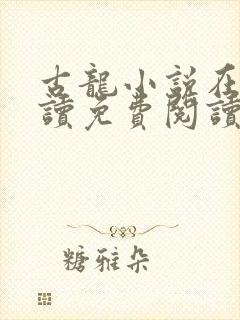 古龍小説在
讀免費閱讀
糖雅朵